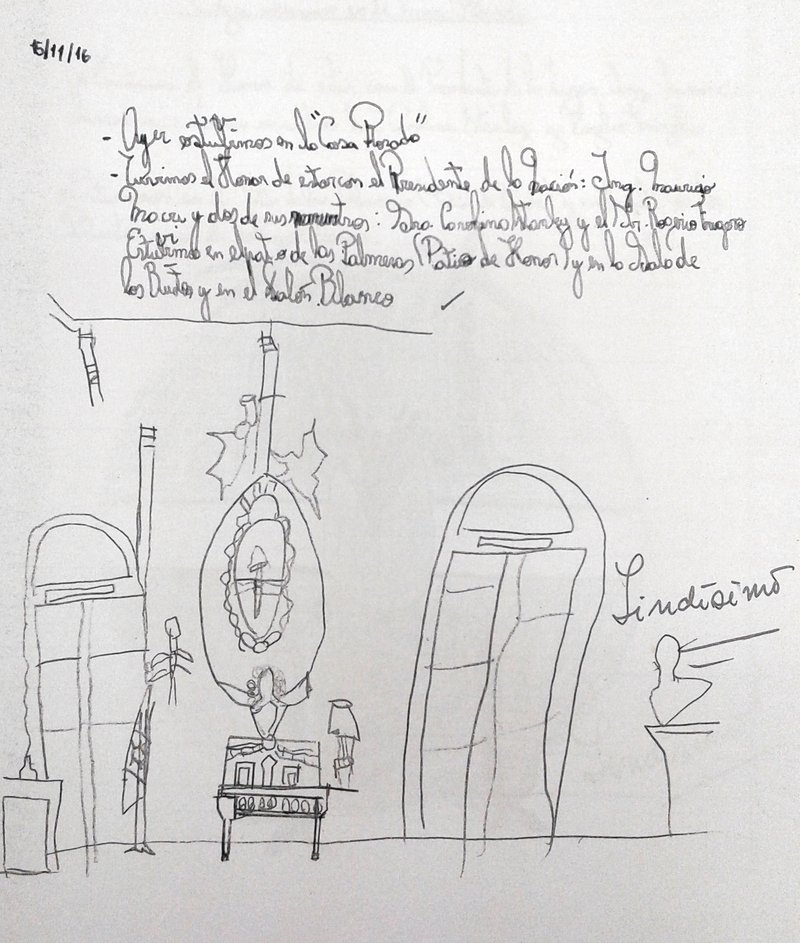 15/11/16
- Ayer estuvimos en la "Casa Rosada"
- Tuvimos el Honor de estar con el Presidente de la Nación: Ing. Mauricio
Macri y dos de sus : Sra. Carolina Stanley y el Sr. Rogerio Frigerio
Estuvimo en el patio de las Palmeras (Patio de Honor) y en la Sala de
los Bustos y en el Salón Blanco
Lindísimo